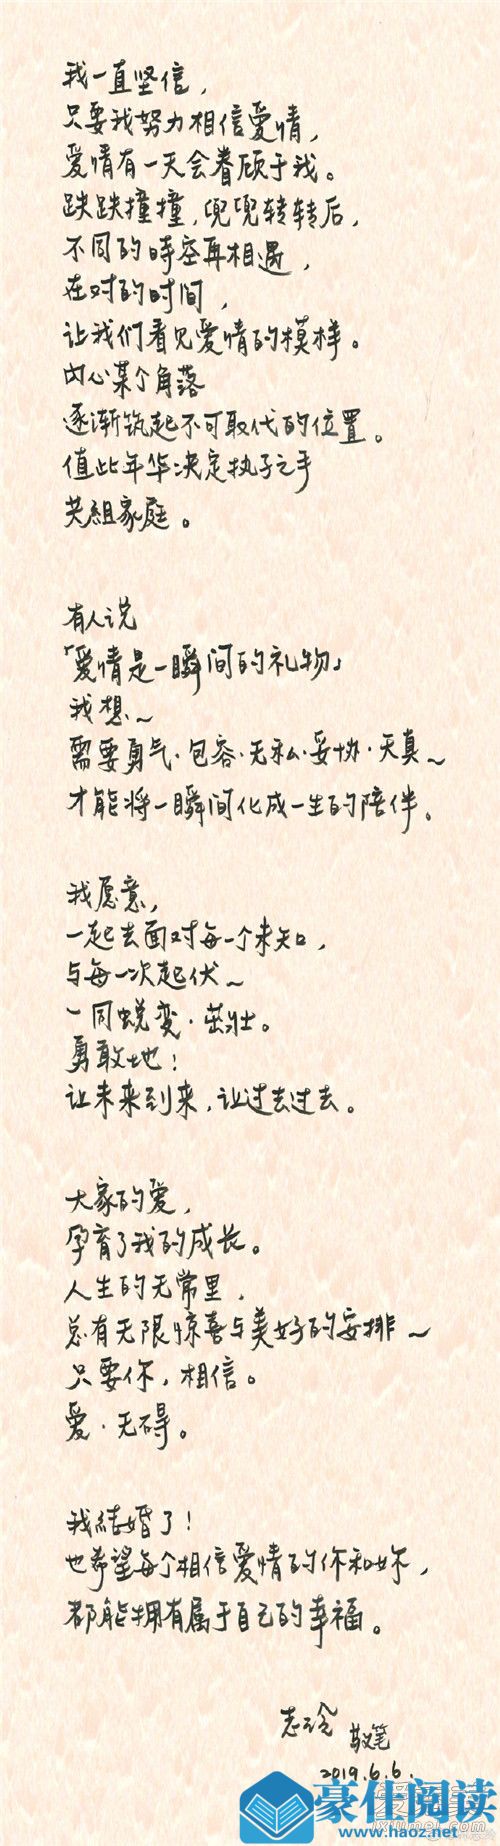 我一直坚信，
只要我努力相信爱情，
爱情有一天会眷顾于我。
跌跌撞撞，兜兜转转后，
不同的時空再相遇，
在对的时间，
让我们看见爱情的模样。
内心某个角落
逐渐筑起不可取代的位置。
值此年华决定执子之手
共組家庭。
有人说
「爱情是一瞬间的礼物」
我想~
需要勇气·包容·无私·妥协·天真~
才能将一瞬间化成一生的陪伴。
我愿意，
一起去面对每一个未知，
与每一次起伏~
一同蜕变·茁壮。
勇敢地！
让未来到来，让过去过去。
大家的爱，
孕育了我的成长。
人生的无常里，
总有无限惊喜与美好的安排~
只要你，相信。
爱·无碍。
我結婚了！
也希望每个相信爱情的你和妳，
都能拥有属于自己的幸福。
志玲 敬笔
2019.6.6.
豪佳阅读
www.haoz.net
ixiumei.com